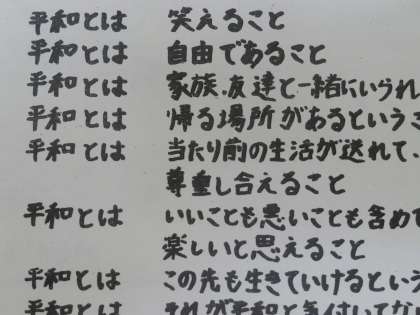 平和とは 笑えること
平和とは 自由であること
平和とは 家族、友達と一緒にいられ
平和とは 帰る場所があるというこ
平和とは 当たり前の生活が送れて、
尊重し合えること
平和とは いいことも悪いことも含めて
楽しいと思えること
平和とは この先も生きていけるという
平和とは それが平和と気付いてな